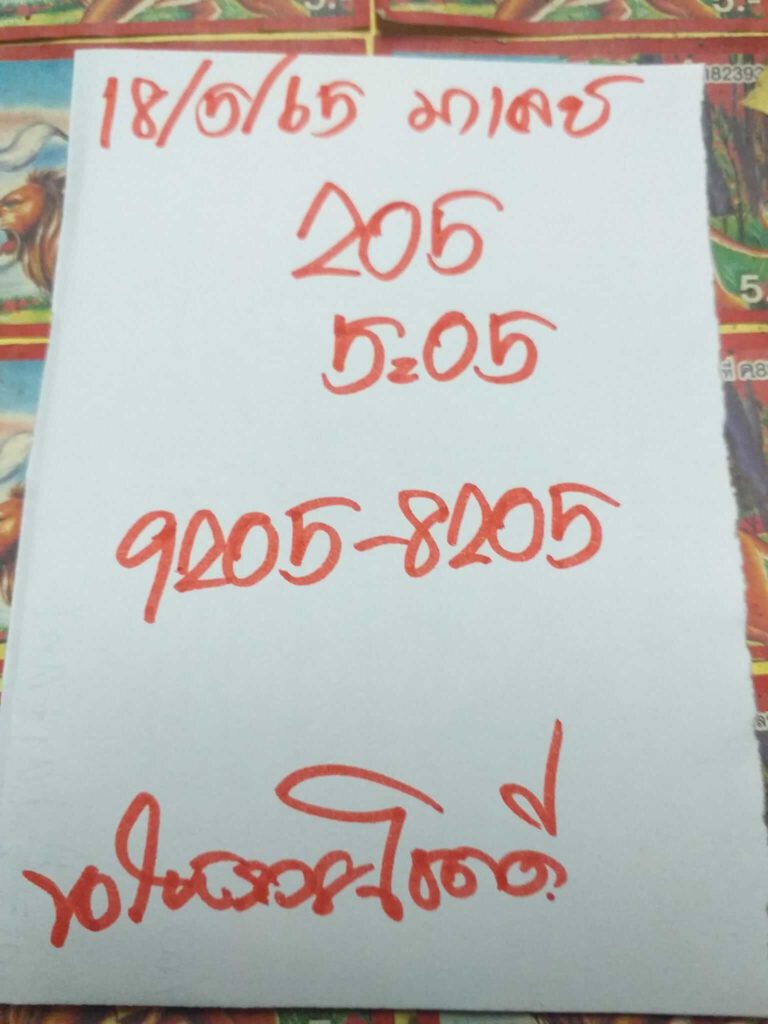 5.-
5.-
182393
18/5/65 มาเลย์
205
5=05
5.
ที่ ค.8
9205-8205
ขอให้รวยๆโชคดี